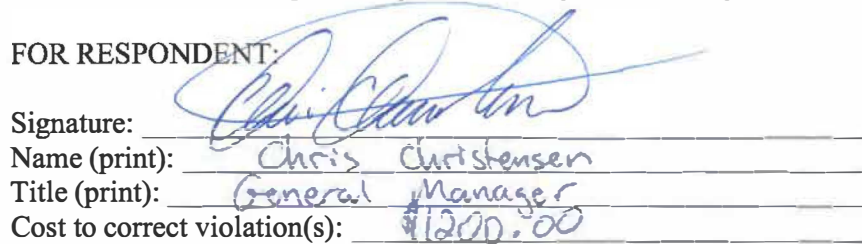 FOR RESPONDENT:
Signature:
Name (print): Chris Christensen
Title (print): General Manager
Cost to correct violation(s): $1200.00